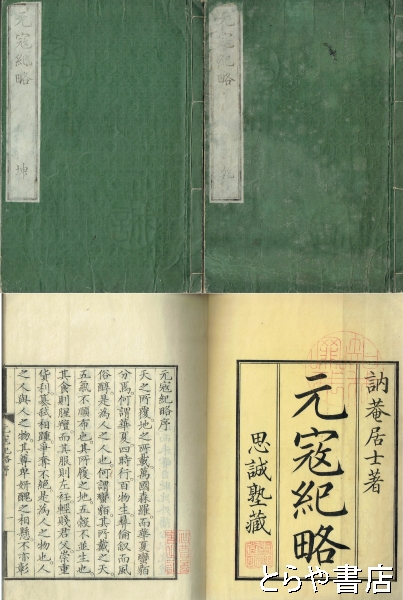 元寇紀略 乾
元寇紀略 坤
訥菴居士著
元寇紀略
思誠塾藏
元寇紀略序
天之所覆地之所載萬國森羅而華夏蠻貊
分焉何謂華夏四時行百物生彝倫叙而風
俗醇是為人之人也何謂蠻貊其所戴之天
五氣不順布也其所履之地五穀不並生也
其食則腥羶而其服則左衽輕賤君父崇重
貨利篡弑相踵爭奪不絕是為人之物也人
之人與人之物其尊卑妍醜之相懸不亦彰
元寇紀略序
とらや書店